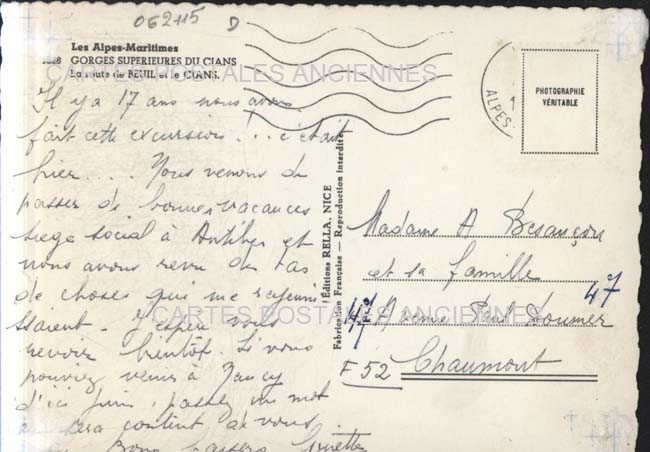 062115 D
Les Alpes-Maritimes
GORGES SUPERIEURES DU CIANS
La route de BEUIL et le CIANS.
CARTES POSTALES ANCIENNES
Il y a 17 ans nous avons
fait cette excursion... c'était
hier.... Nous venons de
passer de bonnes vacances
siege social à Antibes et
nous avons revu des tas
de choses qui me rajeunis
saient - J'espère vous
revoir bientôt. Si vous
pouviez venir à Nancy
d'ici juin, passez un mot
sera content de vous
Bons baisers
Editions RELLA, NICE
Fabrication Française — Reproduction interdite
ALPES
PHOTOGRAPHIE
VÉRITABLE
Madame A Besançon
et sa famille
47
Avenue Paul Doumer
F 52 Chaumont
CARTES POSTALES ANCIENNES